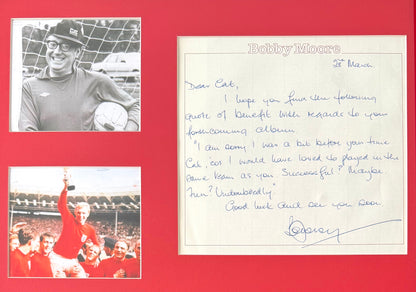 Bobby Moore
28th March
Dear Cat,
I hope you find the following
quote of benefit with regards to your
forthcoming album.
"I am sorry I was a bit before your time
Cat, cos I would have loved to played in the
same team as you. Successful? Maybe.
Fun? Undoubtedly"
Good luck and see you soon.
Bobby